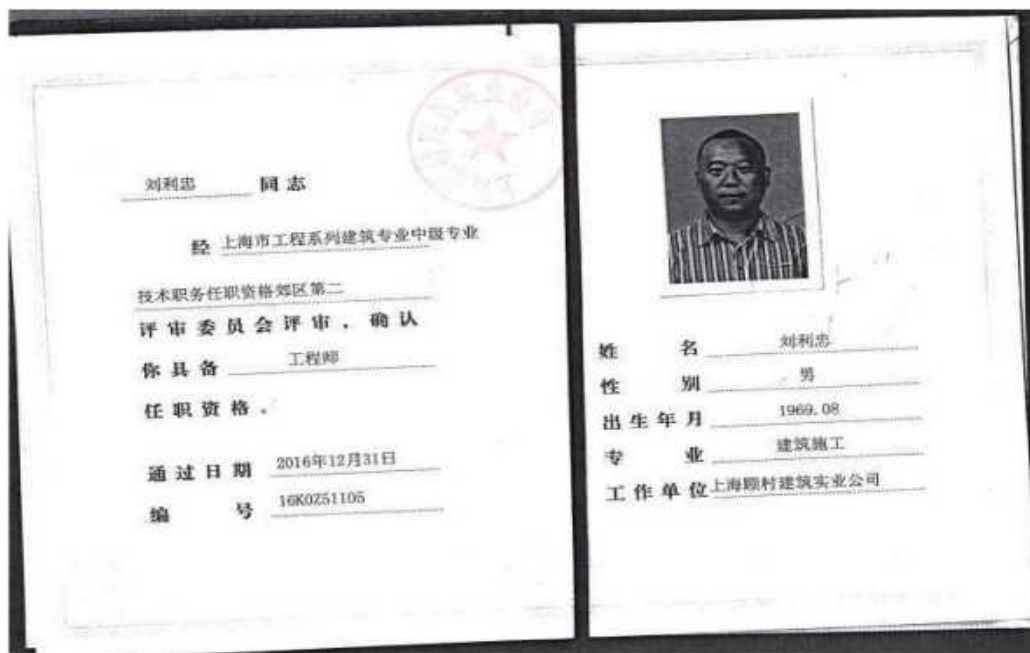 刘利忠 同志
经 上海市工程系列建筑专业中级专业
技术职务任职资格郊区第二
评审委员会评审，确认
你具备 工程师
任职资格。
通过日期 2016年12月31日
编 号 16K0251105
姓 名 刘利忠
性 别 男
出生年月 1969.08
专 业 建筑施工
工作单位 上海顾村建筑实业公司